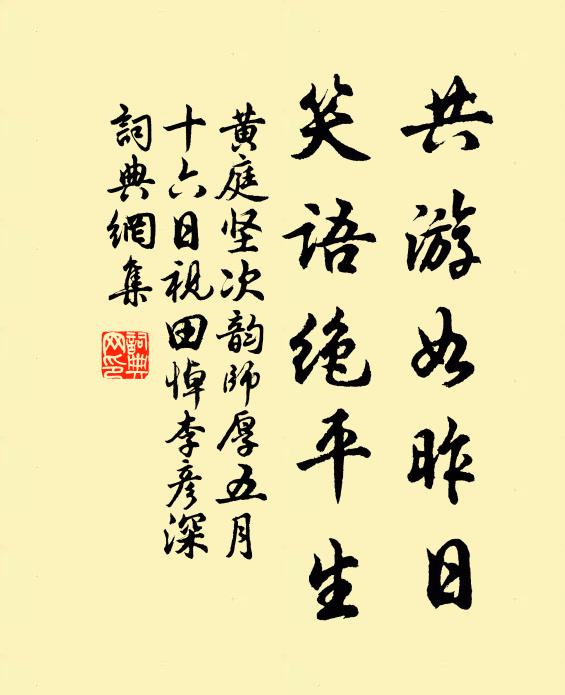 共游如昨日
笑语绝平生
黄庭坚次韵师厚五月
十六日视田悼李彦深
詞典網集
詞典
网印